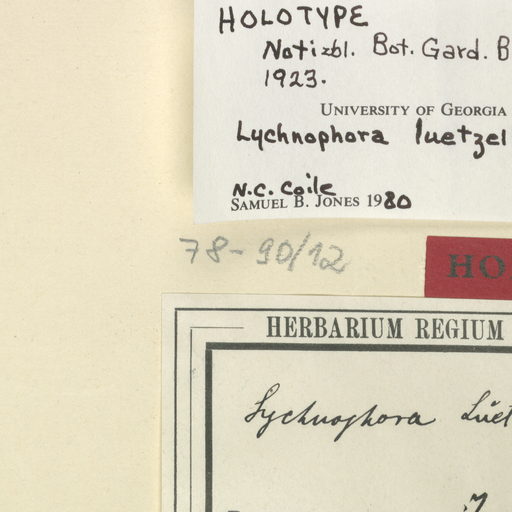 HOLOTYPE
Notizbl. Bot. Gard. B
1923.
UNIVERSITY OF GEORGIA
Lychnophora luetzel
N.C. Coile
SAMUEL B. JONES 1980
78-90/12
HO
HERBARIUM REGIUM
Lychnophora Lüet